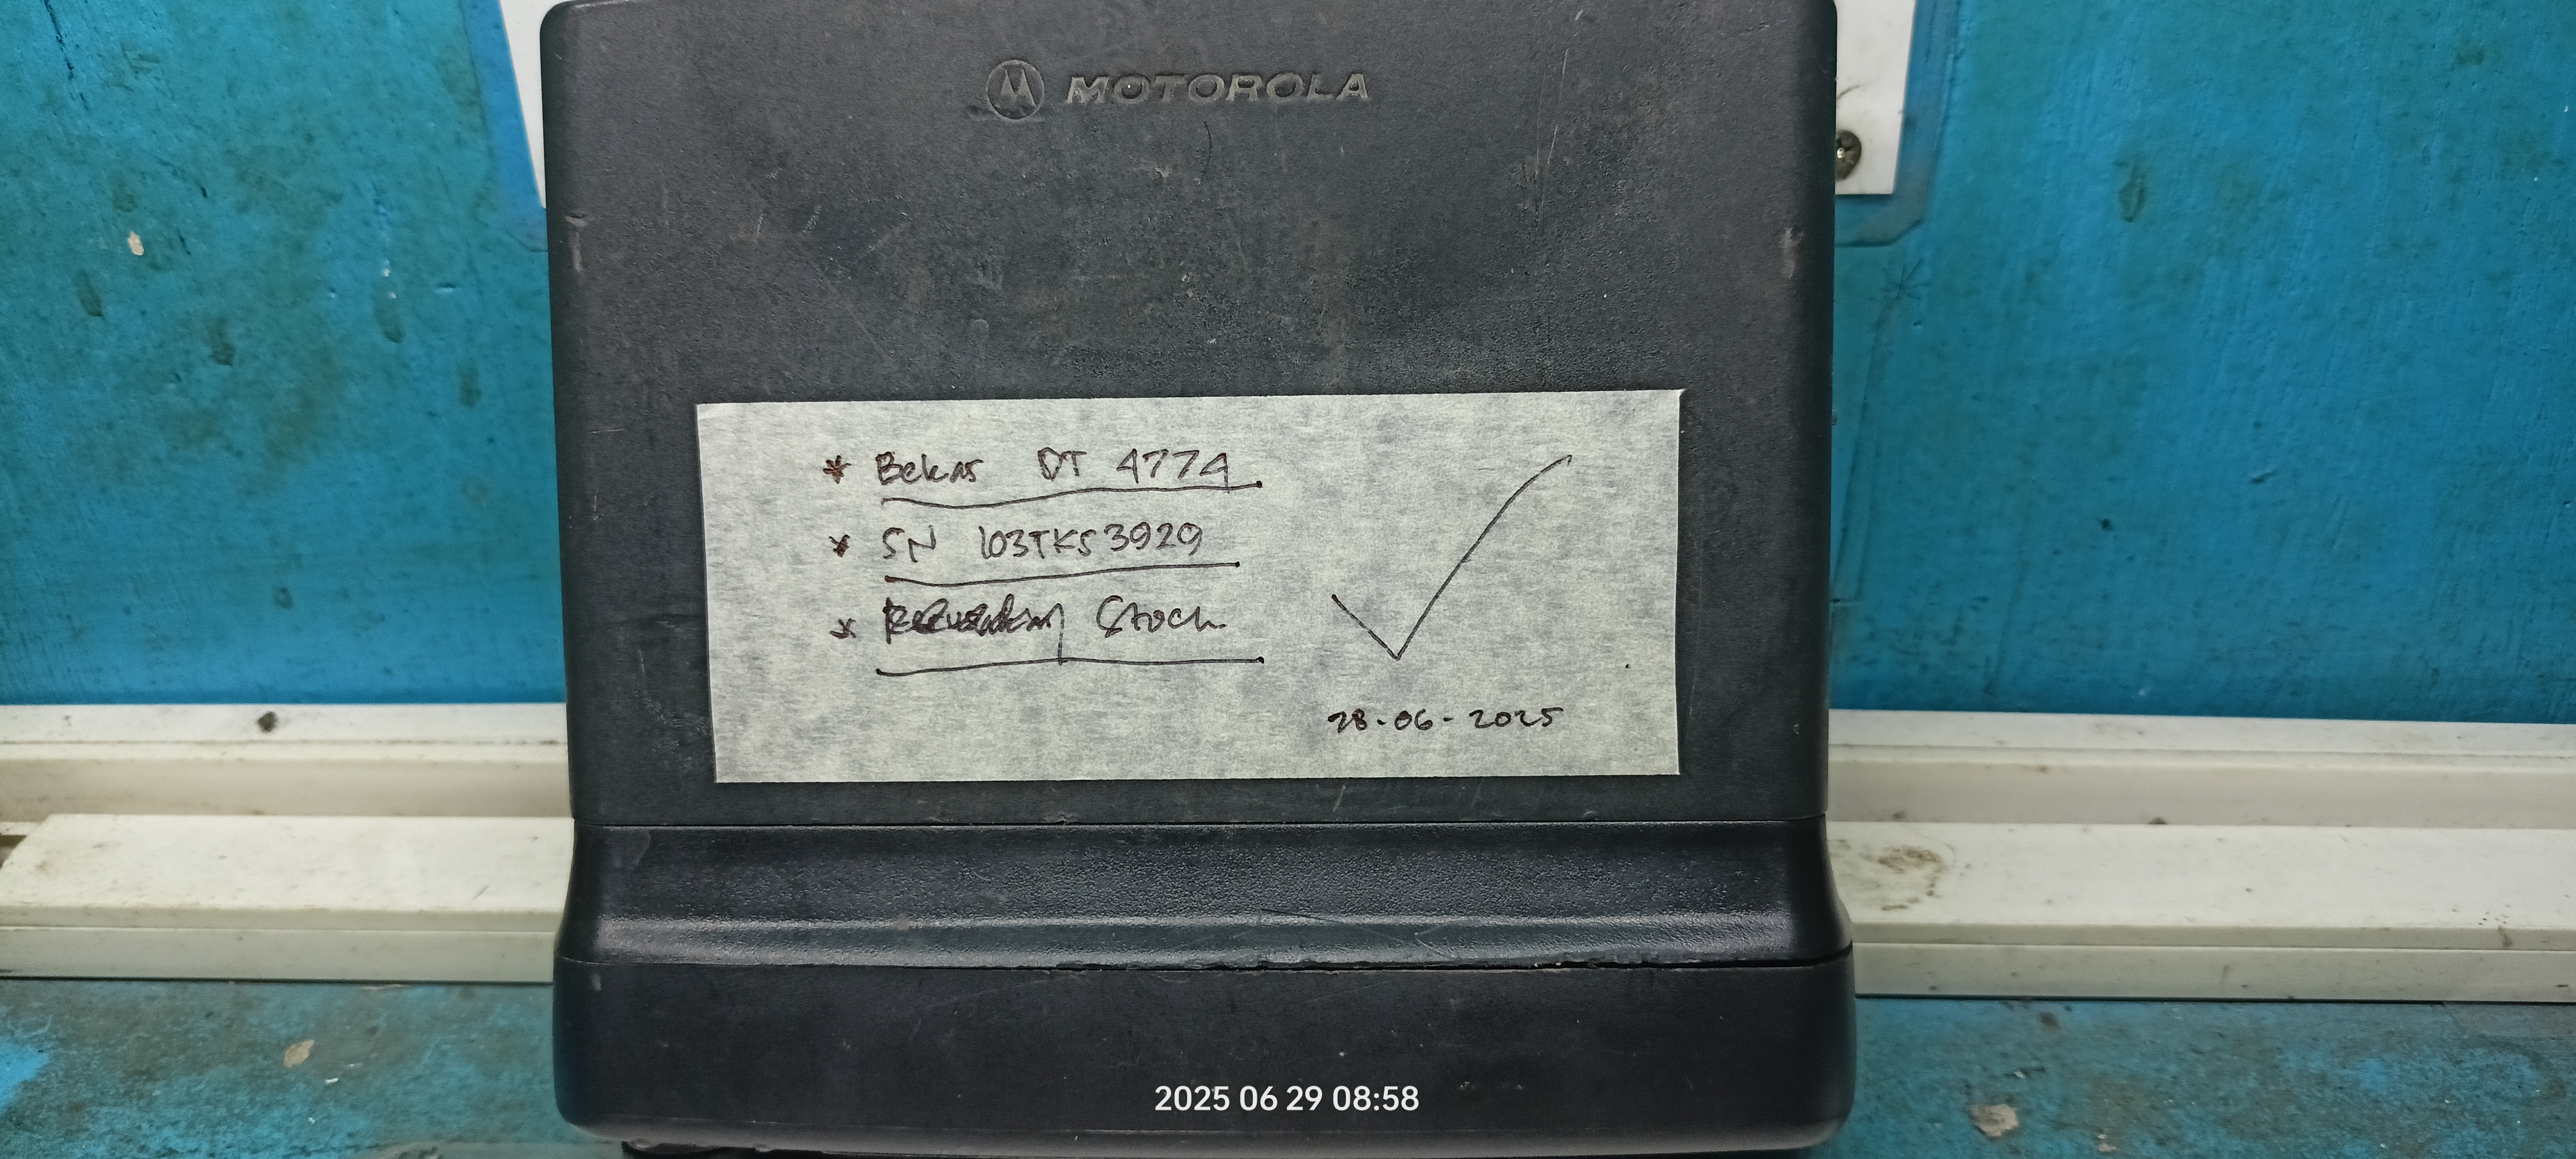 MOTOROLA
* Bekas DT 4774
* SN 103TKS3929
* Stock
28-06-2025
2025 06 29 08:58